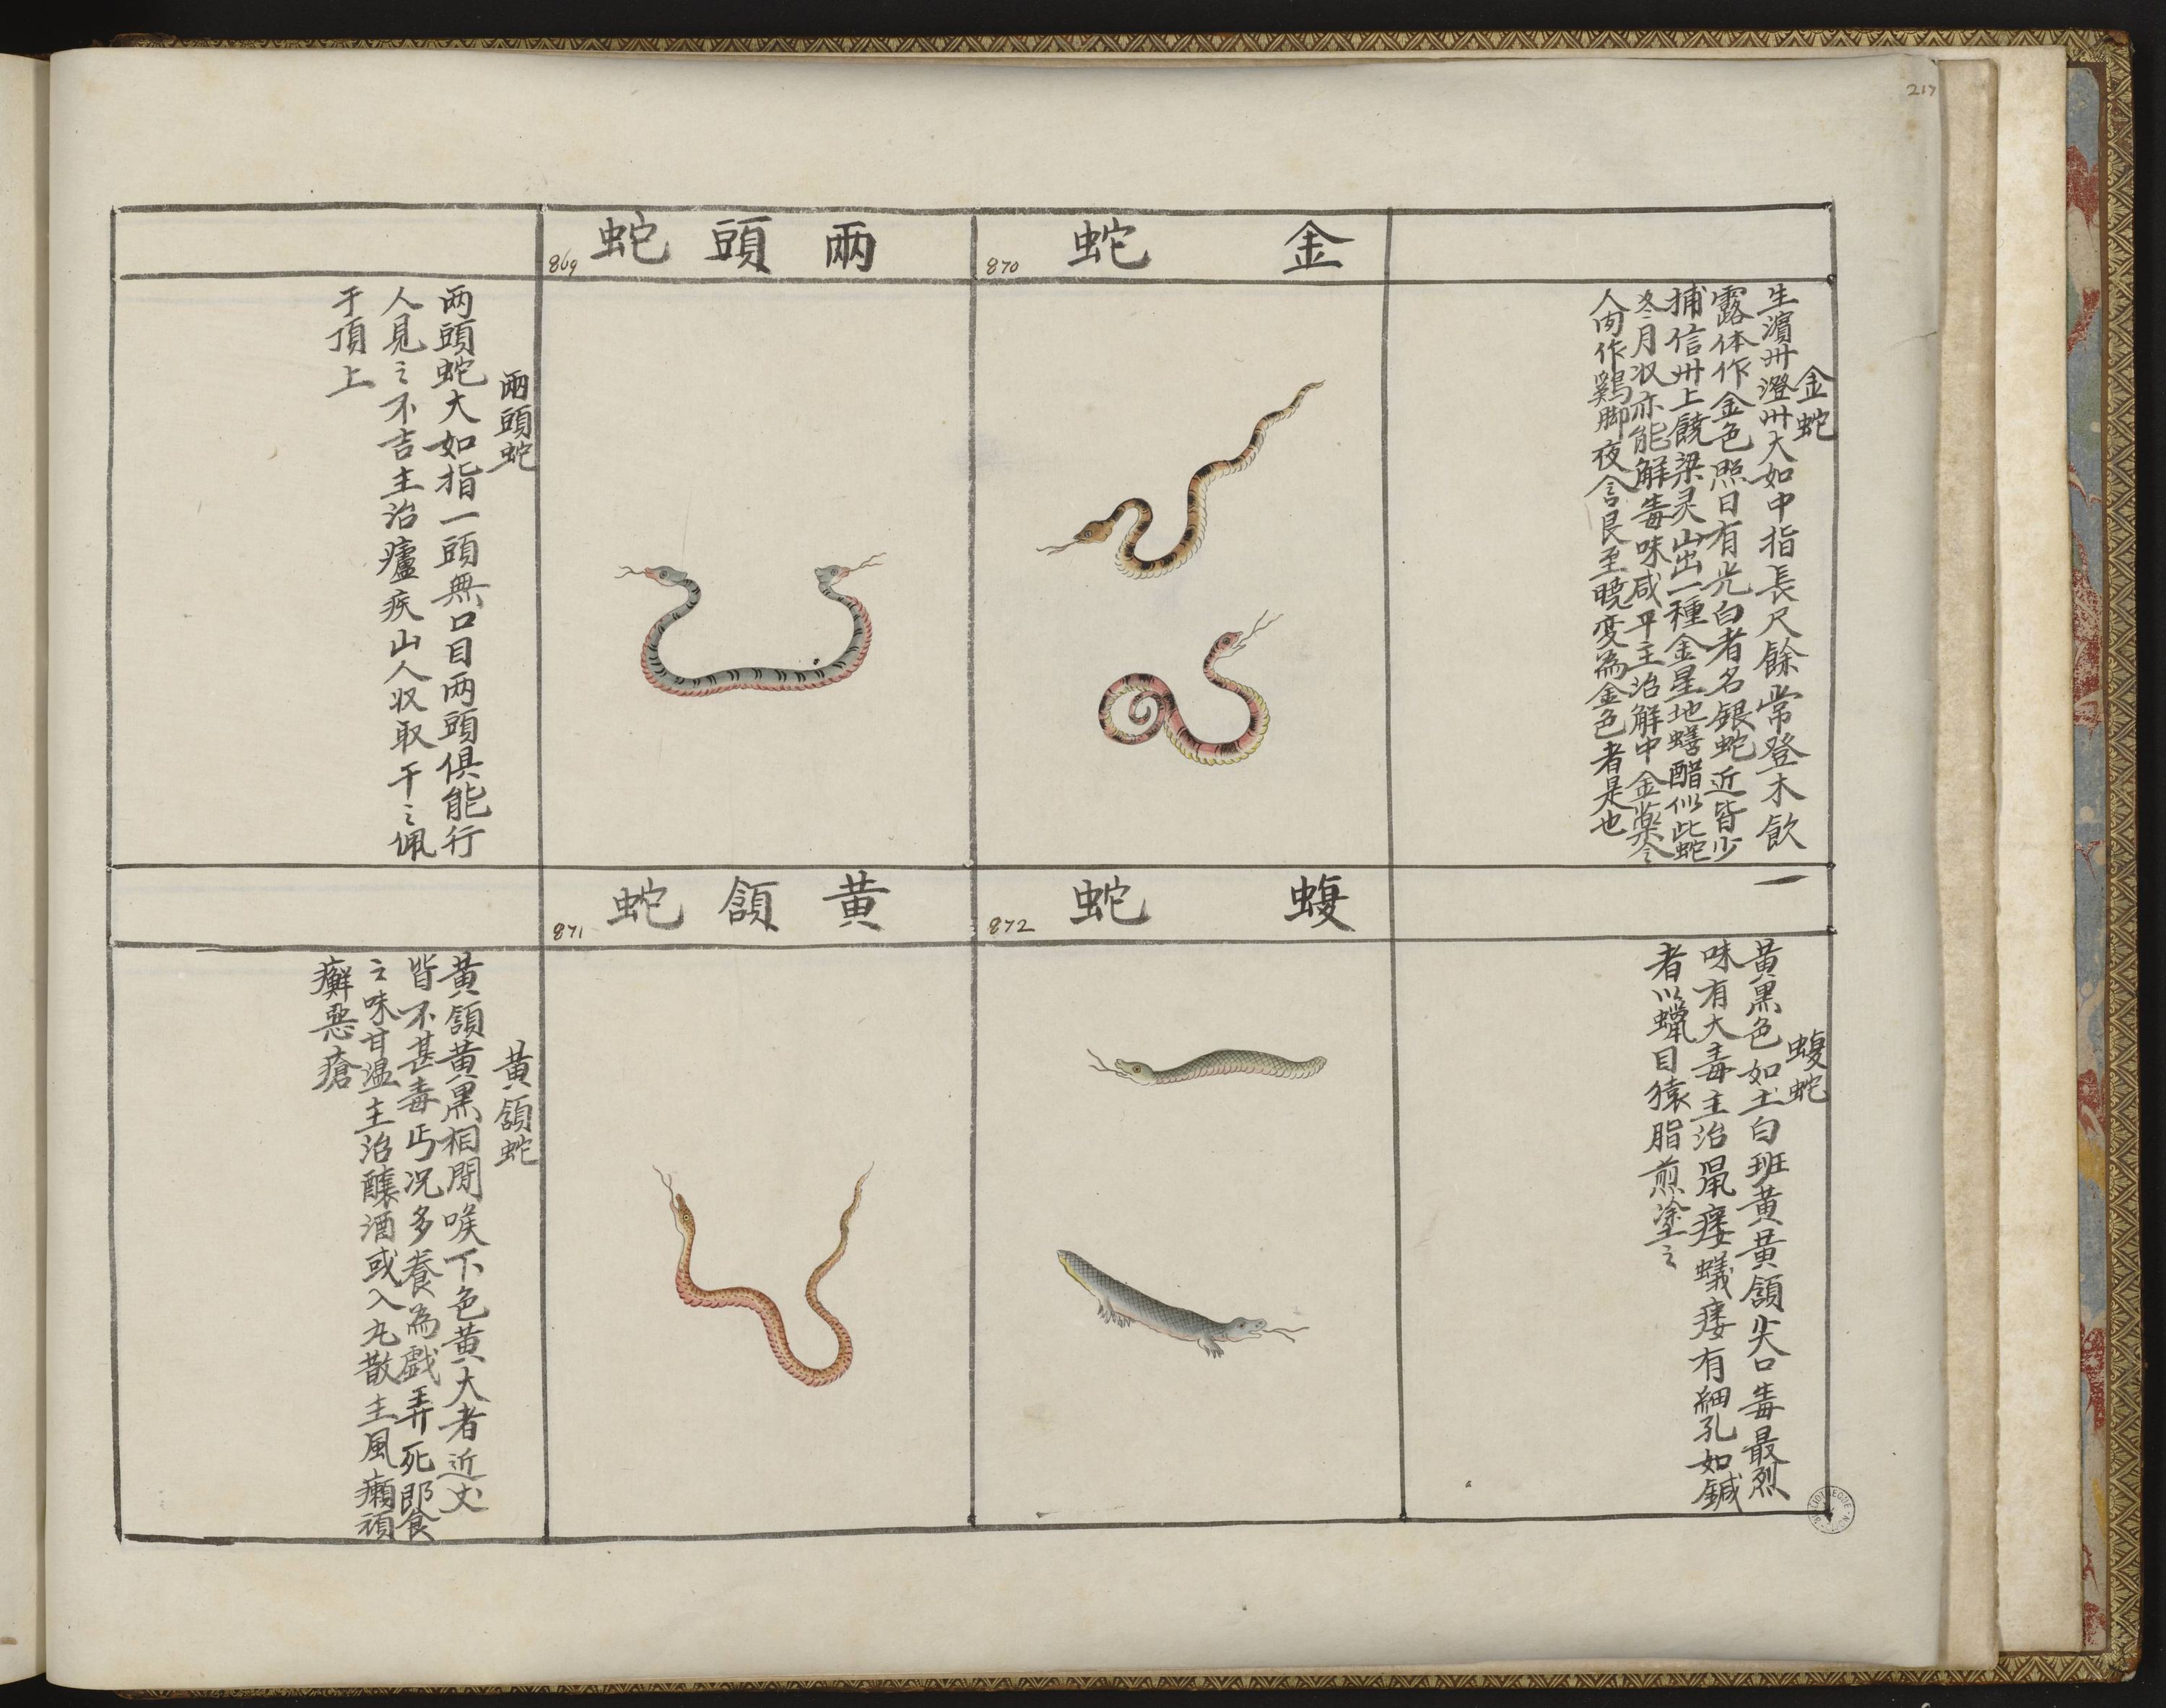 217
金蛇
870
金蛇
生濵州澄州大如中指長尺餘常登木飲
露体作金色照日有光白者名銀蛇近皆少
捕信州上饒梁灵山出一種金星地蟮醋似此蛇
冬月収亦能解毒味咸平主治解中金藥令
人肉作鷄脚夜含艮至曉变為金色者是也
兩頭蛇
869
兩頭蛇
两頭蛇大如指一頭無口目两頭俱能行
人見之不吉主治瘧疾山人収取干之佩
于頂上
一
蝮蛇
872
蝮蛇
黃黒色如土白班黃黃頷尖口毒最烈
味有大毒主治鼠瘻蟻瘻有細孔如鍼
者以蠟目猿脂煎塗之
黃頷蛇
871
黃頷蛇
黃頷黃黒相間喉下色黃大者近丈
皆不甚毒丐況多養為戲弄死即食
之味甘温主治釀酒或入丸散主風癩頑
癬惡瘡